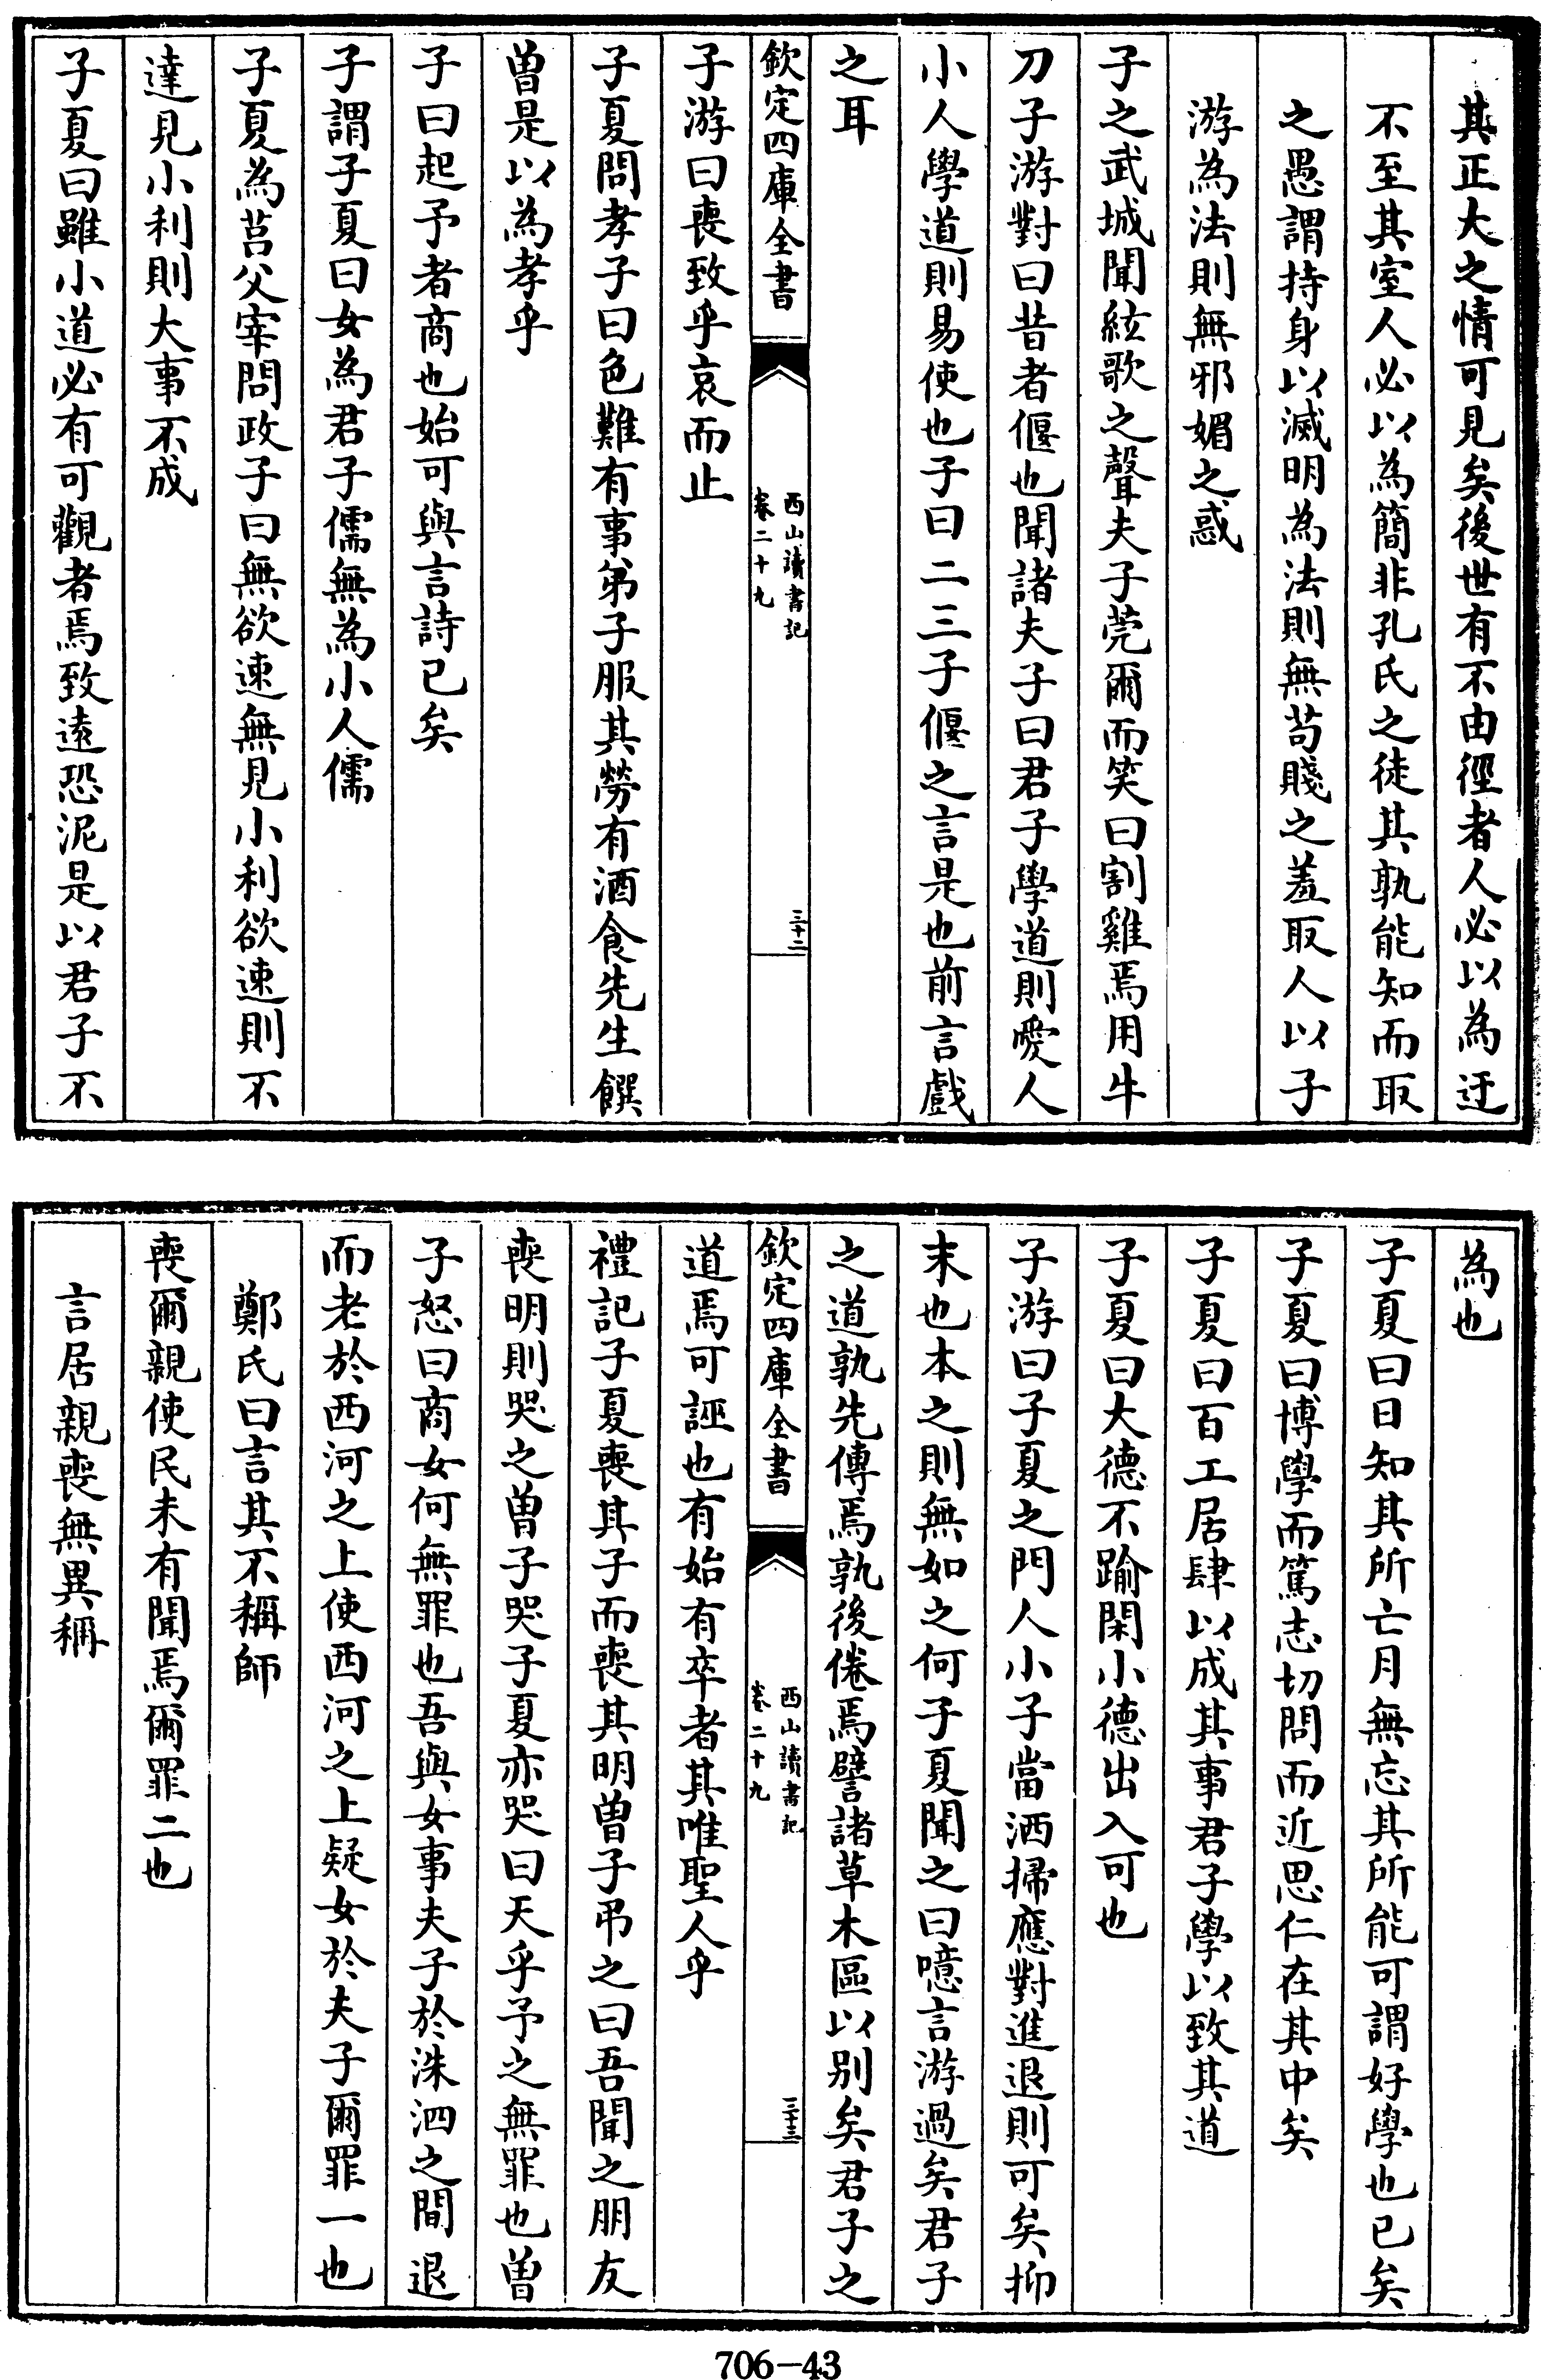 其正大之情可見矣後世有不由徑者人必以為迂
不至其室人必以為簡非孔氏之徒其孰能知而取
之愚謂持身以滅明為法則無苟賤之羞取人以子
游為法則無邪媚之惑
子之武城聞絃歌之聲夫子莞爾而笑曰割雞焉用牛
刀子游對曰昔者偃也聞諸夫子曰君子學道則愛人
小人學道則易使也子曰二三子偃之言是也前言戲
之耳
欽定四庫全書
西山讀書記
卷二十九
三十二
子游曰喪致乎哀而止
子夏問孝子曰色難有事弟子服其勞有酒食先生饌
曾是以為孝乎
子曰起予者商也始可與言詩已矣
子謂子夏曰女為君子儒無為小人儒
子夏為莒父宰問政子曰無欲速無見小利欲速則不
達見小利則大事不成
子夏曰雖小道必有可觀者焉致遠恐泥是以君子不
為也
子夏曰日知其所亡月無忘其所能可謂好學也已矣
子夏曰博學而篤志切問而近思仁在其中矣
子夏曰百工居肆以成其事君子學以致其道
子夏曰大德不踰閑小德出入可也
子游曰子夏之門人小子當洒掃應對進退則可矣抑
末也本之則無如之何子夏聞之曰噫言游過矣君子
之道孰先傳焉孰後倦焉譬諸草木區以别矣君子之
欽定四庫全書
西山讀書記
卷二十九
三十三
道焉可誣也有始有卒者其唯聖人乎
禮記子夏喪其子而喪其明曾子弔之曰吾聞之朋友
喪明則哭之曾子哭子夏亦哭曰天乎予之無罪也曾
子怒曰商女何無罪也吾與女事夫子於洙泗之間退
而老於西河之上使西河之上疑女於夫子爾罪一也
鄭氏曰言其不稱師
喪爾親使民未有聞焉爾罪二也
言居親喪無異稱
706-43